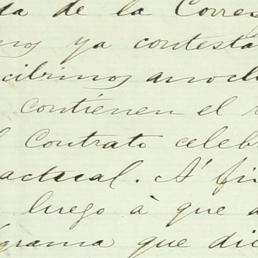 da de la Corres
mos ya contesta
cibimos anoch
contienen el
l Contrato celeb
actual. A' fi
luego à que a
grama que dic